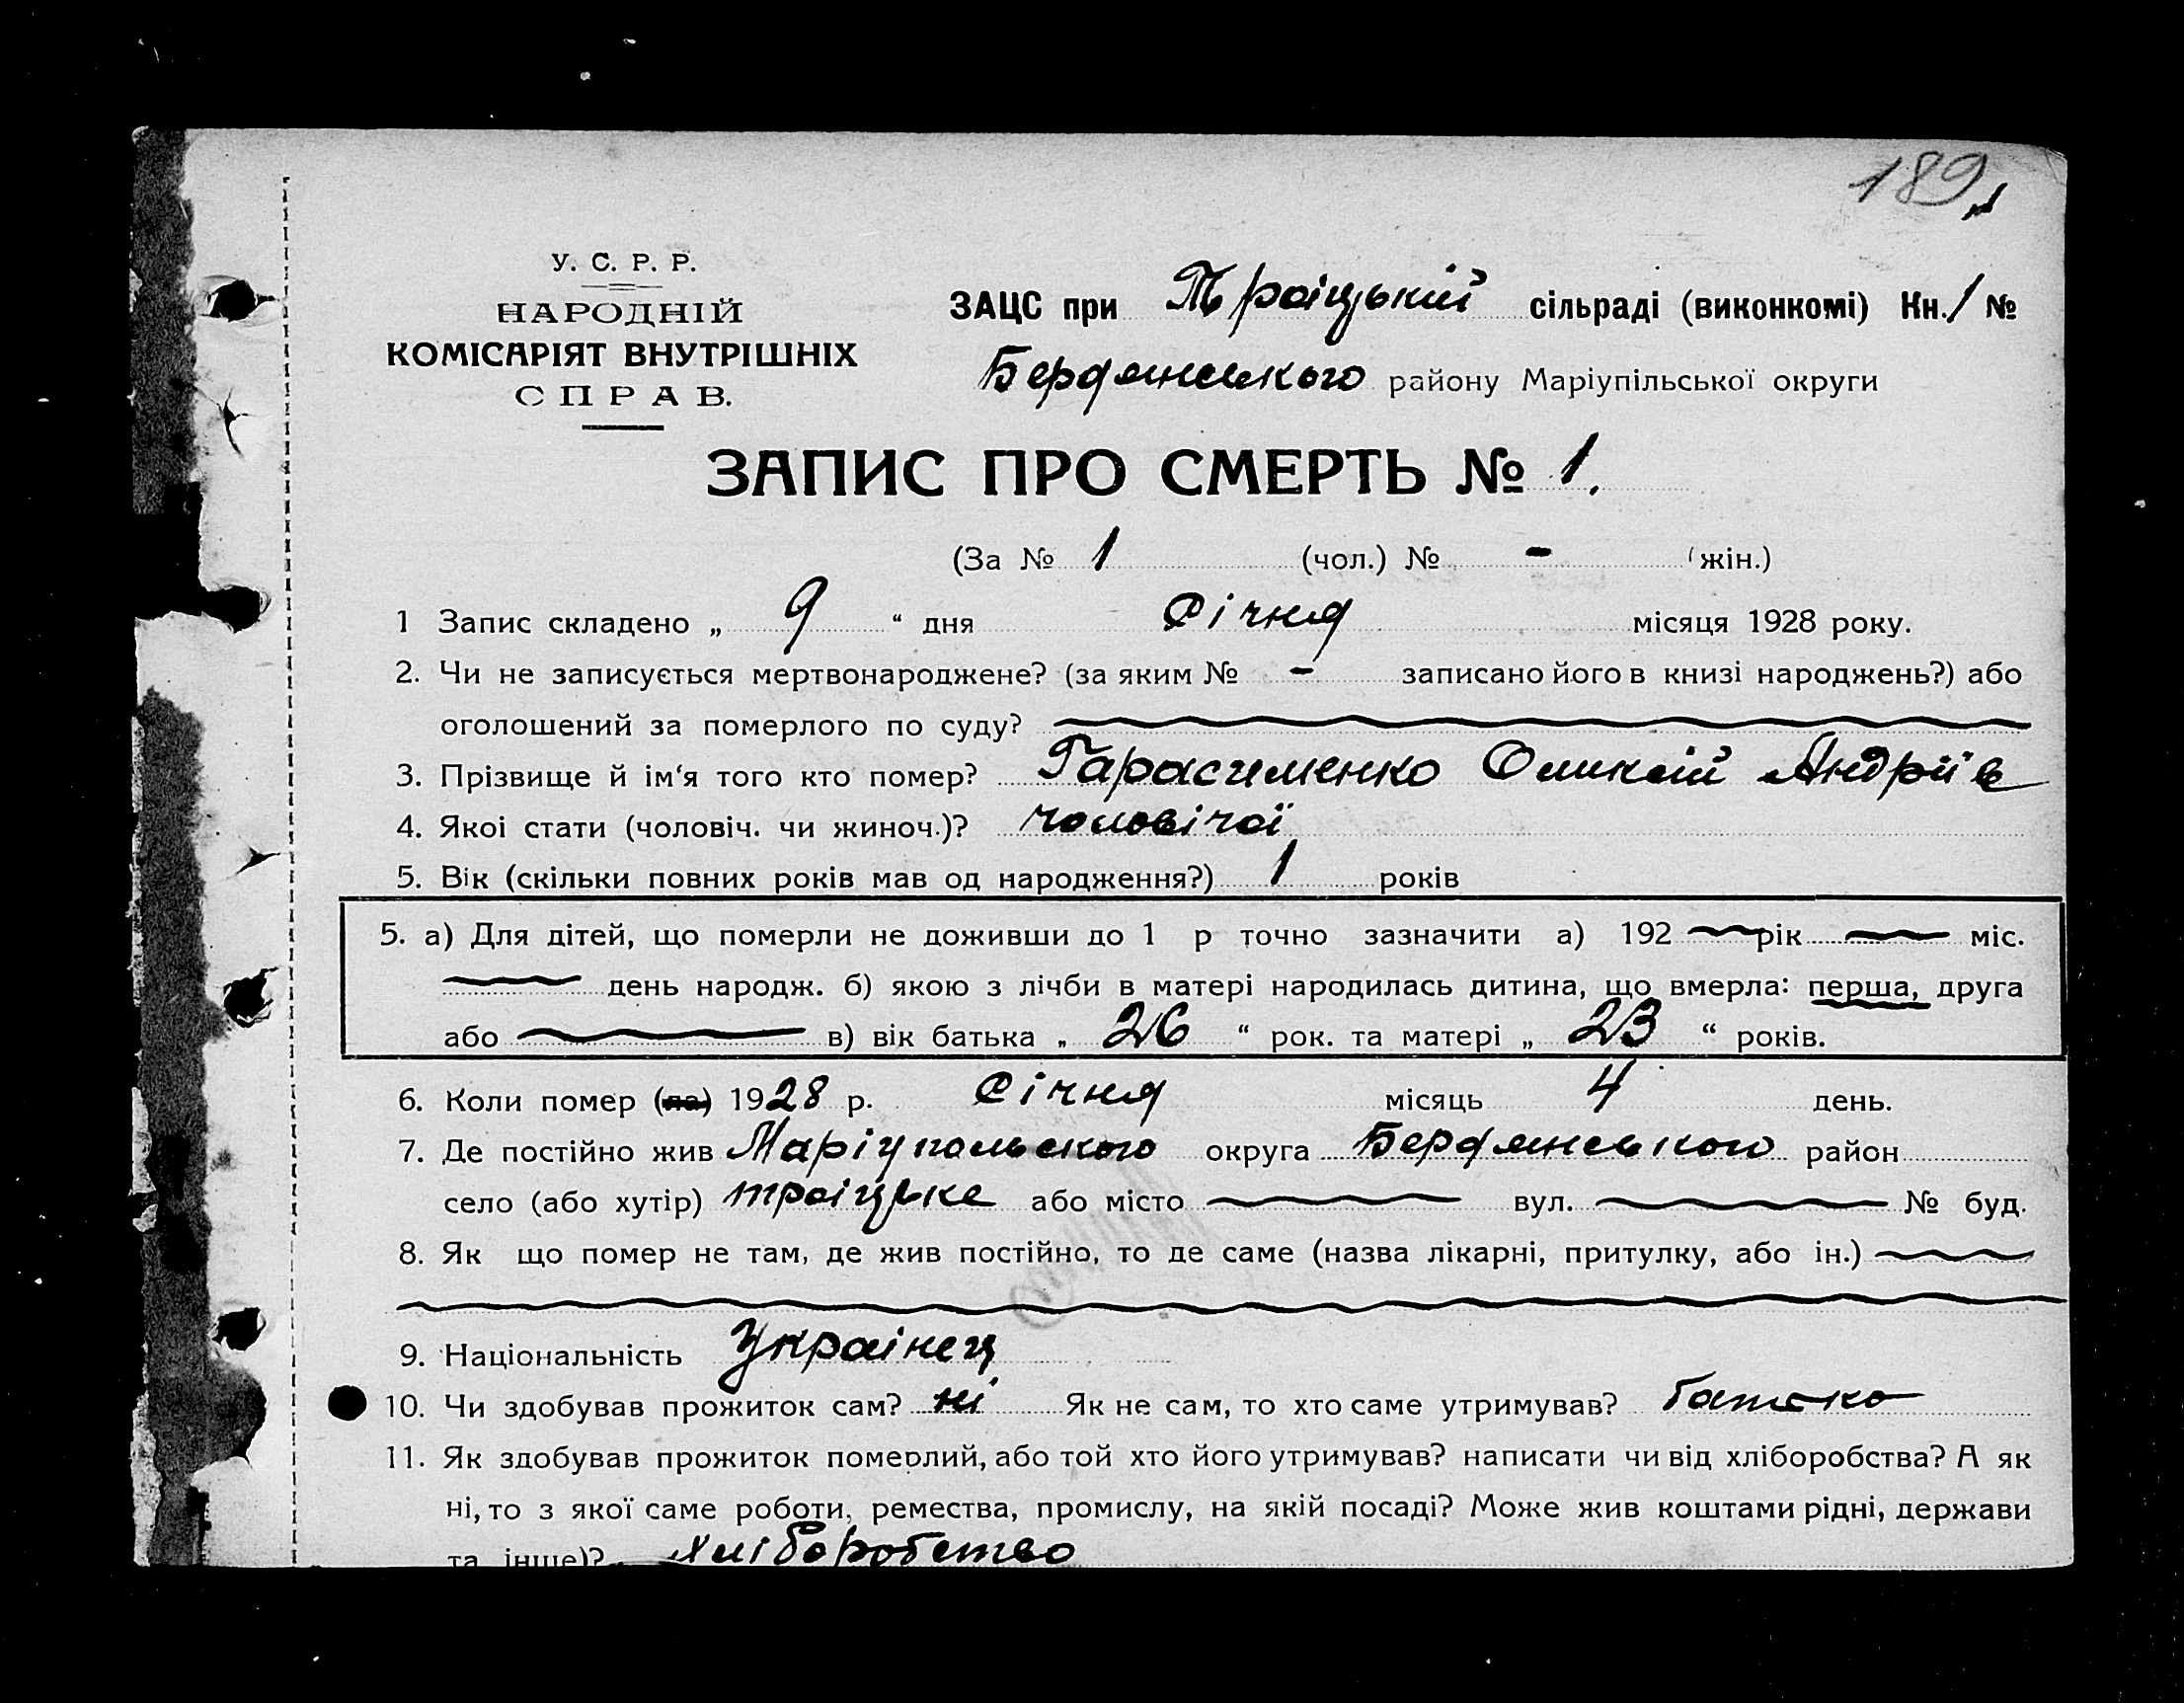 189
У. С. Р. Р.
НАРОДНІЙ
КОМІСАРІЯТ ВНУТРІШНІХ
СПРАВ.
ЗАЦС при Троіцькій сільраді (виконкомі) Кн. 1 №
Бердянського району Маріупільської округи
ЗАПИС ПРО СМЕРТЬ № 1.
(За № 1 (чол.) № - (жін.)
1 Запис складено „ 9 “ дня Січня місяця 1928 року.
2. Чи не записується мертвонароджене? (за яким № - записано його в книзі народжень?) або
оголошений за померлого по суду?
3. Прізвище й ім‘я того кто помер? Гарасименко Оликсій Андріїв
4. Якоі стати (чоловіч. чи жиноч.)? чоловічої
5. Вік (скільки повних років мав од народження?) 1 років
5. а) Для дітей, що померли не доживши до 1 р точно зазначити а) 192 рік міс.
день народж. б) якою з лічби в матері народилась дитина, що вмерла: перша, друга
або в) вік батька „ 26 “ рок. та матері „ 23 “ років.
6. Коли помер (ла) 1928 р. Січня місяць 4 день.
7. Де постійно жив Маріупольського округа Бердянського район
село (або хутір) троіцьке або місто вул. № буд.
8. Як що помер не там, де жив постійно, то де саме (назва лікарні, притулку, або ін.)
9. Національність Украінец
10. Чи здобував прожиток сам? ні Як не сам, то хто саме утримував? батько
11. Як здобував прожиток померлий, або той хто його утримував? написати чи від хліборобства? А як
ні, то з якої саме роботи, ремества, промислу, на якій посаді? Може жив коштами рідні, держави
та інше)? Хліборобство